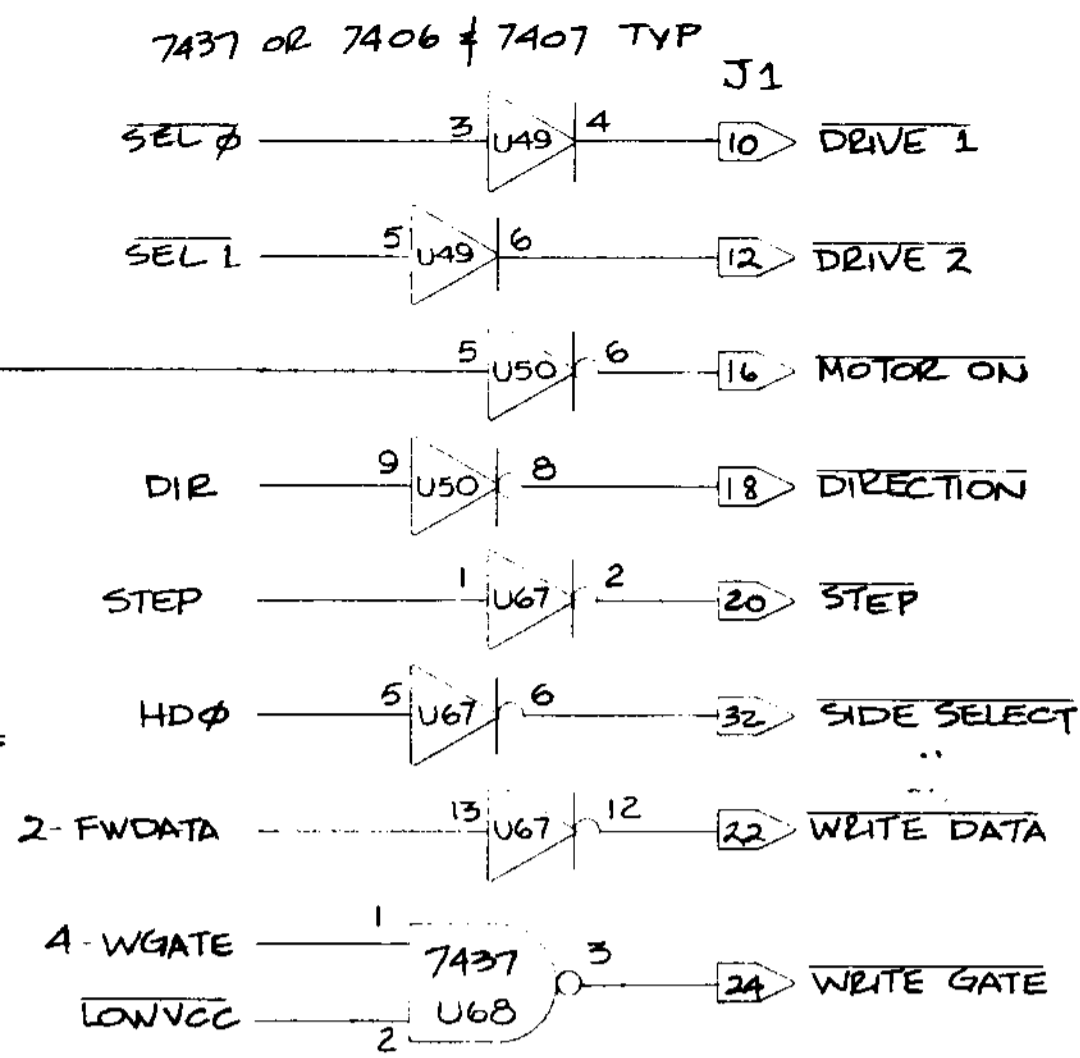 7437 OR 7406 & 7407 TYP
J1
SEL Ø 3 U49 4 10 DRIVE 1
SEL 1 5 U49 6 12 DRIVE 2
5 U50 6 16 MOTOR ON
DIR 9 U50 8 18 DIRECTION
STEP 1 U67 2 20 STEP
HDØ 5 U67 6 32 SIDE SELECT
2-FWDATA 13 U67 12 22 WRITE DATA
4-WGATE 1 7437 3 24 WRITE GATE
LOWVCC 2 U68